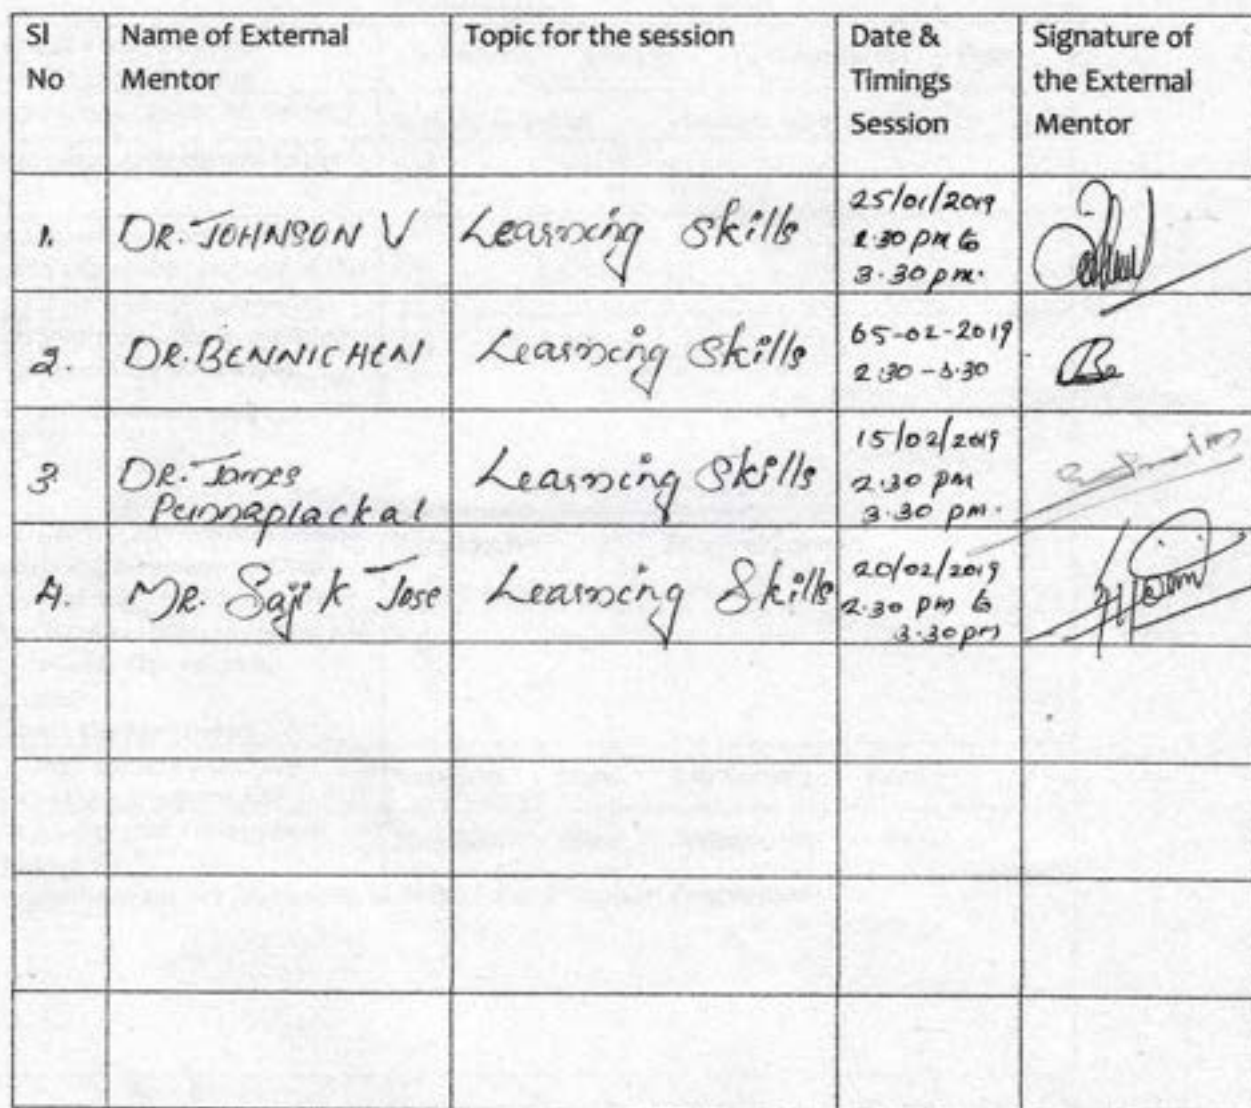 Sl No
Name of External Mentor
Topic for the session
Date & Timings Session
Signature of the External Mentor
1.
DR. JOHNSON V
Learning Skills
25/01/2019
2.30 pm to
3.30 pm.
2.
DR. BENNICHEN
Learning Skills
05-02-2019
2.30 - 3.30
3
DR. James
Punnaplackal
Learning Skills
15/02/2019
2.30 pm
3.30 pm.
4.
MR. Saji K Jose
Learning Skills
20/02/2019
2.30 pm to
3.30 pm